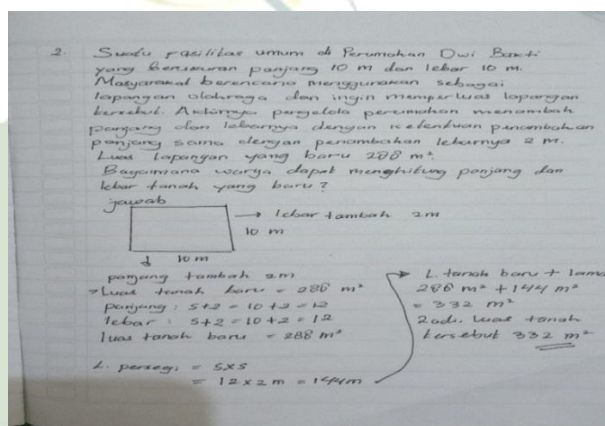 2. Suatu fasilitas umum di Perumahan Dwi Bakti
yang berukuran panjang 10 m dan lebar 10 m.
Masyarakat berencana menggunakan sebagai
lapangan olahraga dan ingin memperluas lapangan
tersebut. Akhirnya pengelola perumahan menambah
panjang dan lebarnya dengan ketentuan penambahan
panjang sama dengan penambahan lebarnya 2 m.
Luas lapangan yang baru 288 m².
Bagaimana warga dapat menghitung panjang dan
lebar tanah yang baru?
jawab
→ lebar tambah 2m
10 m
10 m
panjang tambah 2m
→ Luas tanah baru = 288 m²
panjang : s+2 = 10+2 = 12
lebar : s+2 = 10+2 = 12
luas tanah baru = 288 m²
L. persegi = s×s
= 12 × 2 m = 144 m
L. tanah baru + lama
288 m² + 144 m²
= 332 m²
Jadi, luas tanah
tersebut 332 m²